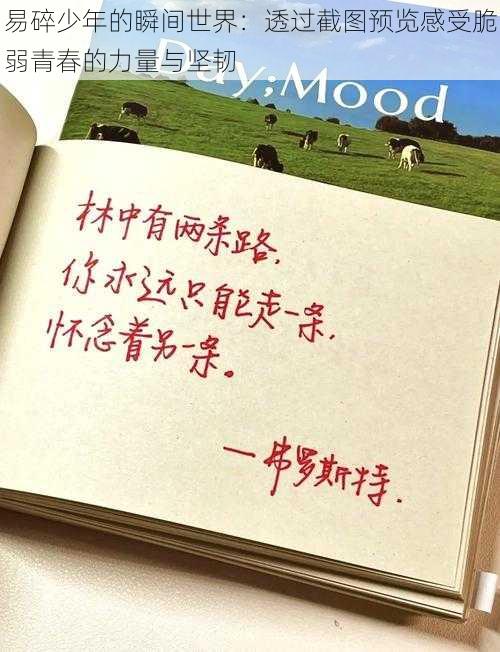 易碎少年的瞬间世界：透过截图预览感受脆
弱青春的力量与坚韧
Day;Mood
林中有两条路,
你永远只能走一条,
怀念着另一条。
—弗罗斯特.